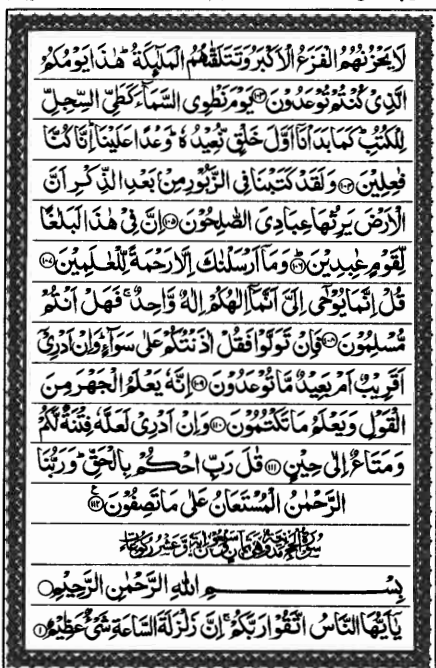 لَا يَحْزُنُهُمُ الْفَزَعُ الْاَكْبَرُ وَتَتَلَقّٰىهُمُ الْمَلٰٓئِكَةُ ؕ هٰذَا يَوْمُكُمُ
الَّذِىْ كُنْتُمْ تُوْعَدُوْنَ ﴿۱۰۳﴾ يَوْمَ نَطْوِى السَّمَآءَ كَطَىِّ السِّجِلِّ
لِلْكُتُبِ ؕ كَمَا بَدَاْنَاۤ اَوَّلَ خَلْقٍ نُّعِيْدُهٗ ؕ وَعْدًا عَلَيْنَا ؕ اِنَّا كُنَّا
فٰعِلِيْنَ ﴿۱۰۴﴾ وَلَقَدْ كَتَبْنَا فِى الزَّبُوْرِ مِنْۢ بَعْدِ الذِّكْرِ اَنَّ
الْاَرْضَ يَرِثُهَا عِبَادِىَ الصّٰلِحُوْنَ ﴿۱۰۵﴾ اِنَّ فِىْ هٰذَا لَبَلٰغًا
لِّقَوْمٍ عٰبِدِيْنَ ﴿۱۰۶﴾ وَمَاۤ اَرْسَلْنٰكَ اِلَّا رَحْمَةً لِّلْعٰلَمِيْنَ ﴿۱۰۷﴾
قُلْ اِنَّمَا يُوْحٰٓى اِلَىَّ اَنَّمَاۤ اِلٰهُكُمْ اِلٰهٌ وَّاحِدٌ ۚ فَهَلْ اَنْتُمْ
مُّسْلِمُوْنَ ﴿۱۰۸﴾ فَاِنْ تَوَلَّوْا فَقُلْ اٰذَنْتُكُمْ عَلٰى سَوَآءٍ ؕ وَاِنْ اَدْرِىْۤ
اَقَرِيْبٌ اَمْ بَعِيْدٌ مَّا تُوْعَدُوْنَ ﴿۱۰۹﴾ اِنَّهٗ يَعْلَمُ الْجَهْرَ مِنَ
الْقَوْلِ وَيَعْلَمُ مَا تَكْتُمُوْنَ ﴿۱۱۰﴾ وَاِنْ اَدْرِىْ لَعَلَّهٗ فِتْنَةٌ لَّكُمْ
وَمَتَاعٌ اِلٰى حِيْنٍ ﴿۱۱۱﴾ قٰلَ رَبِّ احْكُمْ بِالْحَقِّ ؕ وَرَبُّنَا
الرَّحْمٰنُ الْمُسْتَعَانُ عَلٰى مَا تَصِفُوْنَ ﴿۱۱۲﴾
بِسْمِ اللّٰهِ الرَّحْمٰنِ الرَّحِيْمِ
يٰۤاَيُّهَا النَّاسُ اتَّقُوْا رَبَّكُمْ ۚ اِنَّ زَلْزَلَةَ السَّاعَةِ شَىْءٌ عَظِيْمٌ ﴿۱﴾